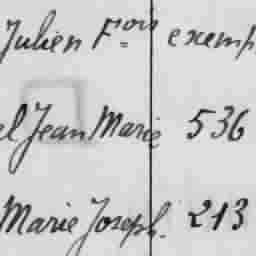 Julien F.ois exemp
el Jean Marie 536
Marie Joseph. 213